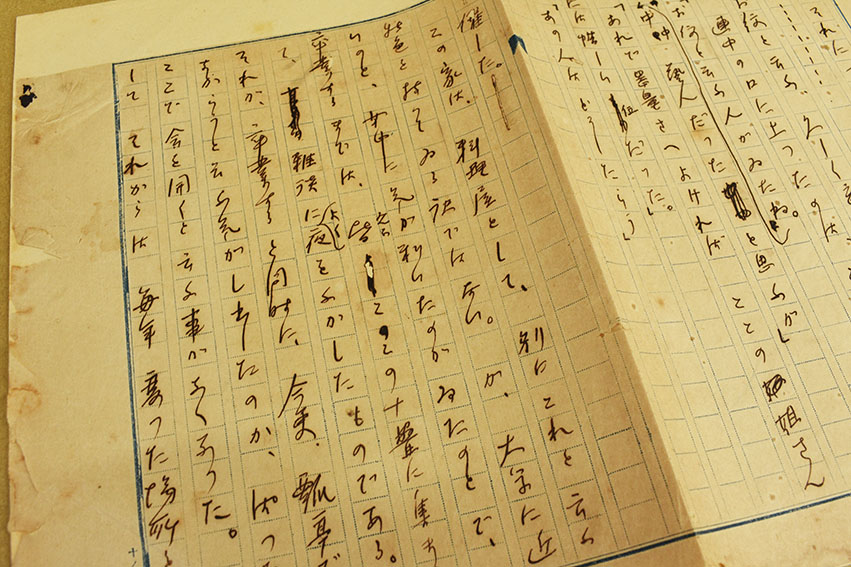 それに
連中の口に上つたのは
と云ふ人がゐたね。
と思ふが」
ここの姐さん
「あれで器量さへよければ
には惜しい位だつた」。
「あの人はどうしたらう」
催した。
この家は、料理屋として、別にこれと云ふ
特色を持つてゐる訳ではない。が、大学に近
いのと、女中に気が利いたのがゐたのとで、
卒業するまでは、皆よくここの十畳に集ま
て、雑談に夜をふかしたものである。
それが、卒業すると同時に、今更、瓢亭で
もなからうと云ふ気がし出したのか、ぱつ
ここで会を開くと云ふ事がなくなつた。
して それからは 毎年 変つた場所を